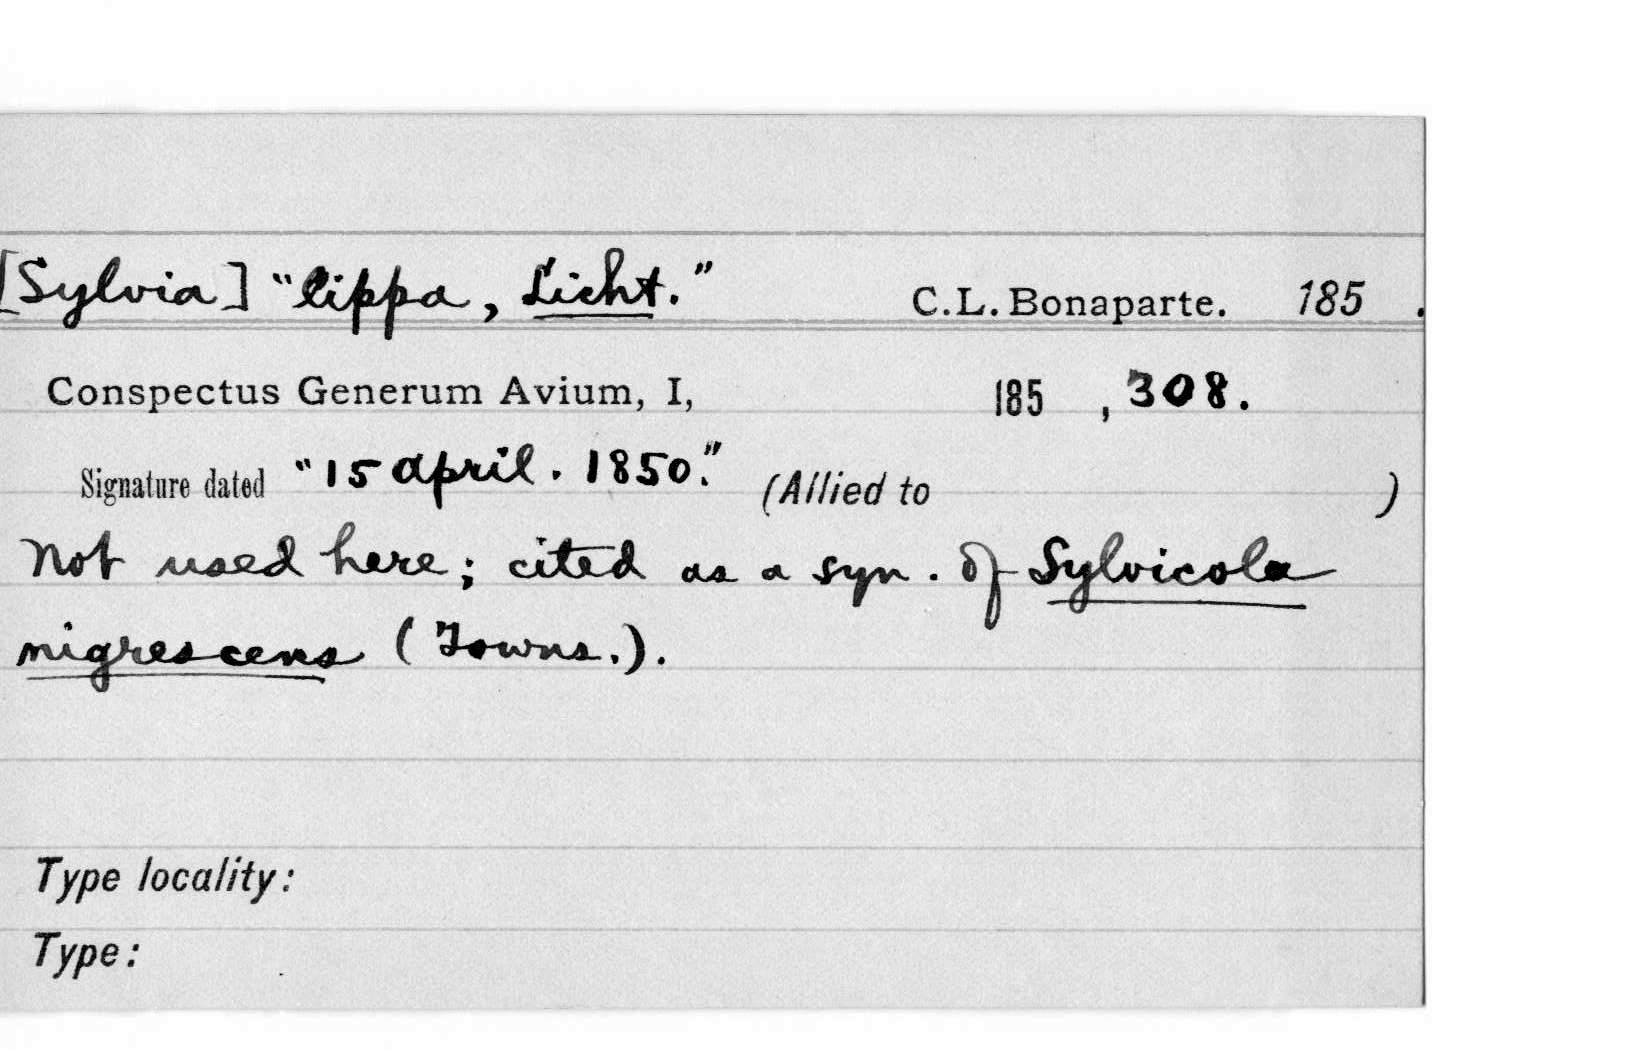 [Sylvia] "lippa, Licht." C.L. Bonaparte. 185 .
Conspectus Generum Avium, I, 185 , 308.
Signature dated "15 april. 1850." (Allied to )
Not used here; cited as a syn. of Sylvicola
nigrescens (Towns.).
Type locality:
Type: